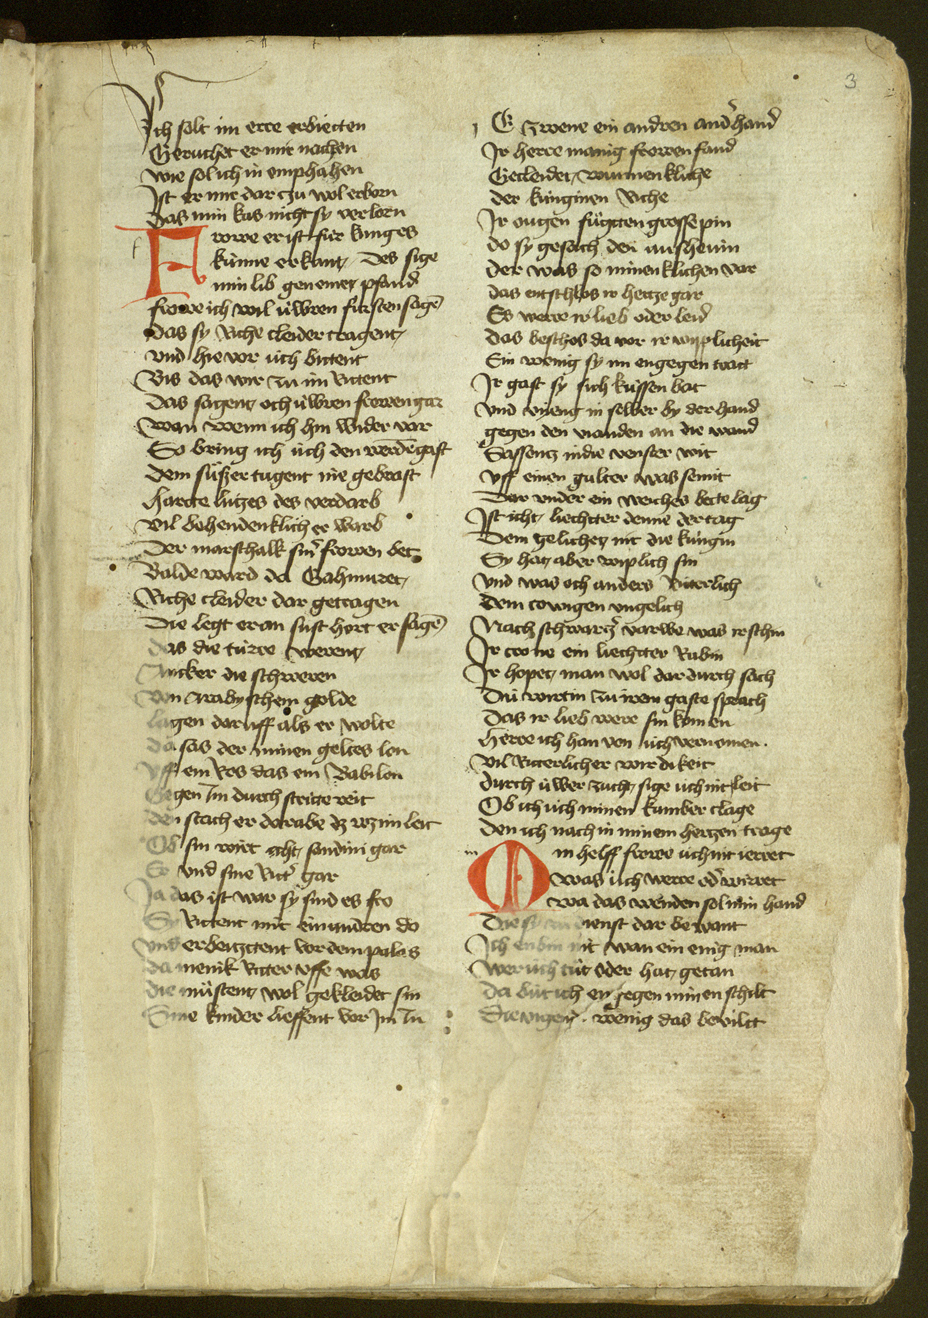 3
Ich solt im erre erbietten
Geruchet er mir nachen
wie sol ich in emphahen
Ist er mir dar czu wol erborn
Das min kus nicht sy verlorn
Frowe er ist für kunges
künne erkant, Des sige
min lib gen einer pfand
frowe ich wil üwren fürsten sagē
das sy Riche cleider tragent,
vnd hie vor üch bittent
Bis das wir zu im Rittent
Das sagent, och üwren frowen gar
wan wenn ich hin wider var
So bring ich üch den werdē gast
dem süsser tugent nie gebrast
harte lützes des verdarb
vil behendenklich er warb
Der marsthalk sinr̄ frowen bet
Balde ward do Gahmuret,
Riche cleider dar getragen
Die legt er an sust hort er sagē
das die türe werent,
Ancker die schweren
von Arabyschem golde
lagen dar uff als er wolte
da sas der minen geltes lon
vff ein Ros das ein Babilon
gegen Im durch stritte reit
den stach er dorabe dz wz im leit
Ob sin wirt icht, sandim gar
Er vnd sine Ritr̄ gar
Ja das ist war sy sind es fro
Sy Rittent mit einandren do
vnd erbeitztent vor dem palas
da menik Ritter vffe was
die müstent, wol gekleidet sin
Sine kinder lieffent vor Im In
E zwene ein andren and̄ hand
Ir herre manig frowen fand
Gecleidet, wunnenkliche
der künginen Riche
Ir ougen fügtten grosse pin
do sy gesach den anscheuin
der was so minenklichen var
das entschlos ir hertze gar
Es werre ir lieb oder leid
das beschlos da vor ir wiplicheit
Ein wenig sy im engegen tratt
Ir gast sy sich küssen bat
vnd vieng in selber by der hand
gegen den vianden an die wand
Sassentz in die venster wit
vff einen gulter was semit
Dar vnder ein weiches bette lag
Ist icht, liechtter denne der tag
Dem gelichet, nit die küngin
Sy hat, aber wiplich sin
vnd was och anders Ritterlich
Dem towigen vngelich
Nach schwarcz̄ varwe was ir schin
Ir crone ein liechtter Rubin
Ir hopet, man wol dar durch sach
Dü wirtin zu irem gaste sprach
Das ir lieb were sin komen
herre ich han von üch vernomen.
Vil Ritterlicher wirdikeit
durch üwer zucht, sige üch nit leit
Ob ich üch minen kumber clage
den ich nach in minem hertzen trage
Min helff frowe üch nit ierret
was üch werre od̄ wirret
wa das wenden sol min hand
Die sy dienst dar bewant
Ich enbin nit wan ein einig man
wer üch tüt oder hat, getan
da büt ich engegen minen schilt
Die vigenr̄. wenig das bewilt